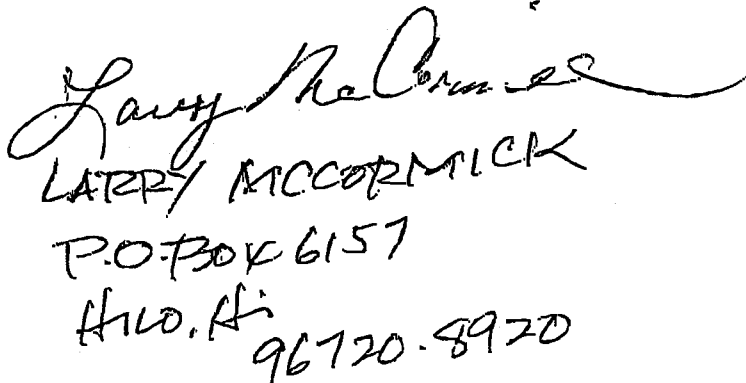 Larry McCormick
LARRY MCCORMICK
P.O. BOX 6157
HILO, Hi
96720-8920